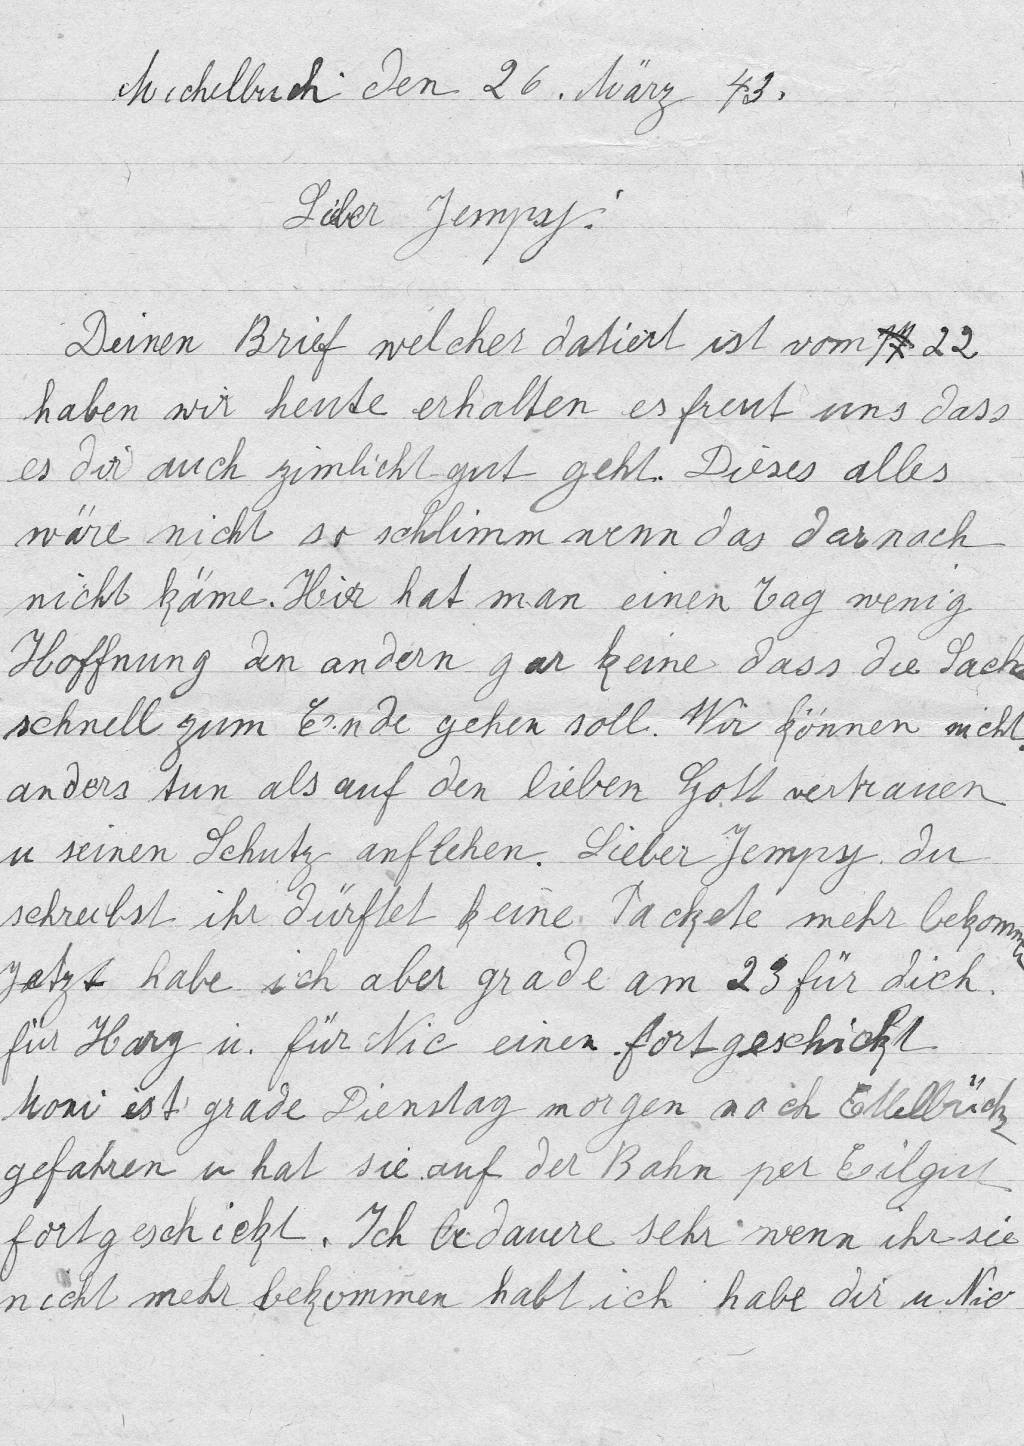 Michelbuch den 26. März 43.
Lieber Jempy!
Deinen Brief welcher datiert ist vom 22
haben wir heute erhalten es freut uns dass
es dir auch zimlicht gut geht. Dieses alles
wäre nicht so schlimm wenn das darnach
nicht käme. Hir hat man einen Tag wenig
Hoffnung den andern gar keine dass die Sache
schnell zum Ende gehen soll. Wir können nicht
anders tun als auf den lieben Gott vertrauen
u seinen Schutz anflehen. Lieber Jempy du
schreibst ihr dürftet keine Packete mehr bekommen
Jetzt habe ich aber grade am 23 für dich.
für Harg u. für Nic einen fortgeschickt
Moni ist grade Dienstag morgen nach Ettelbrück
gefahren u hat sie auf der Bahn per Eilgut
fortgeschickt. Ich bedauere sehr wenn ihr sie
nicht mehr bekommen habt ich habe dir u Nic